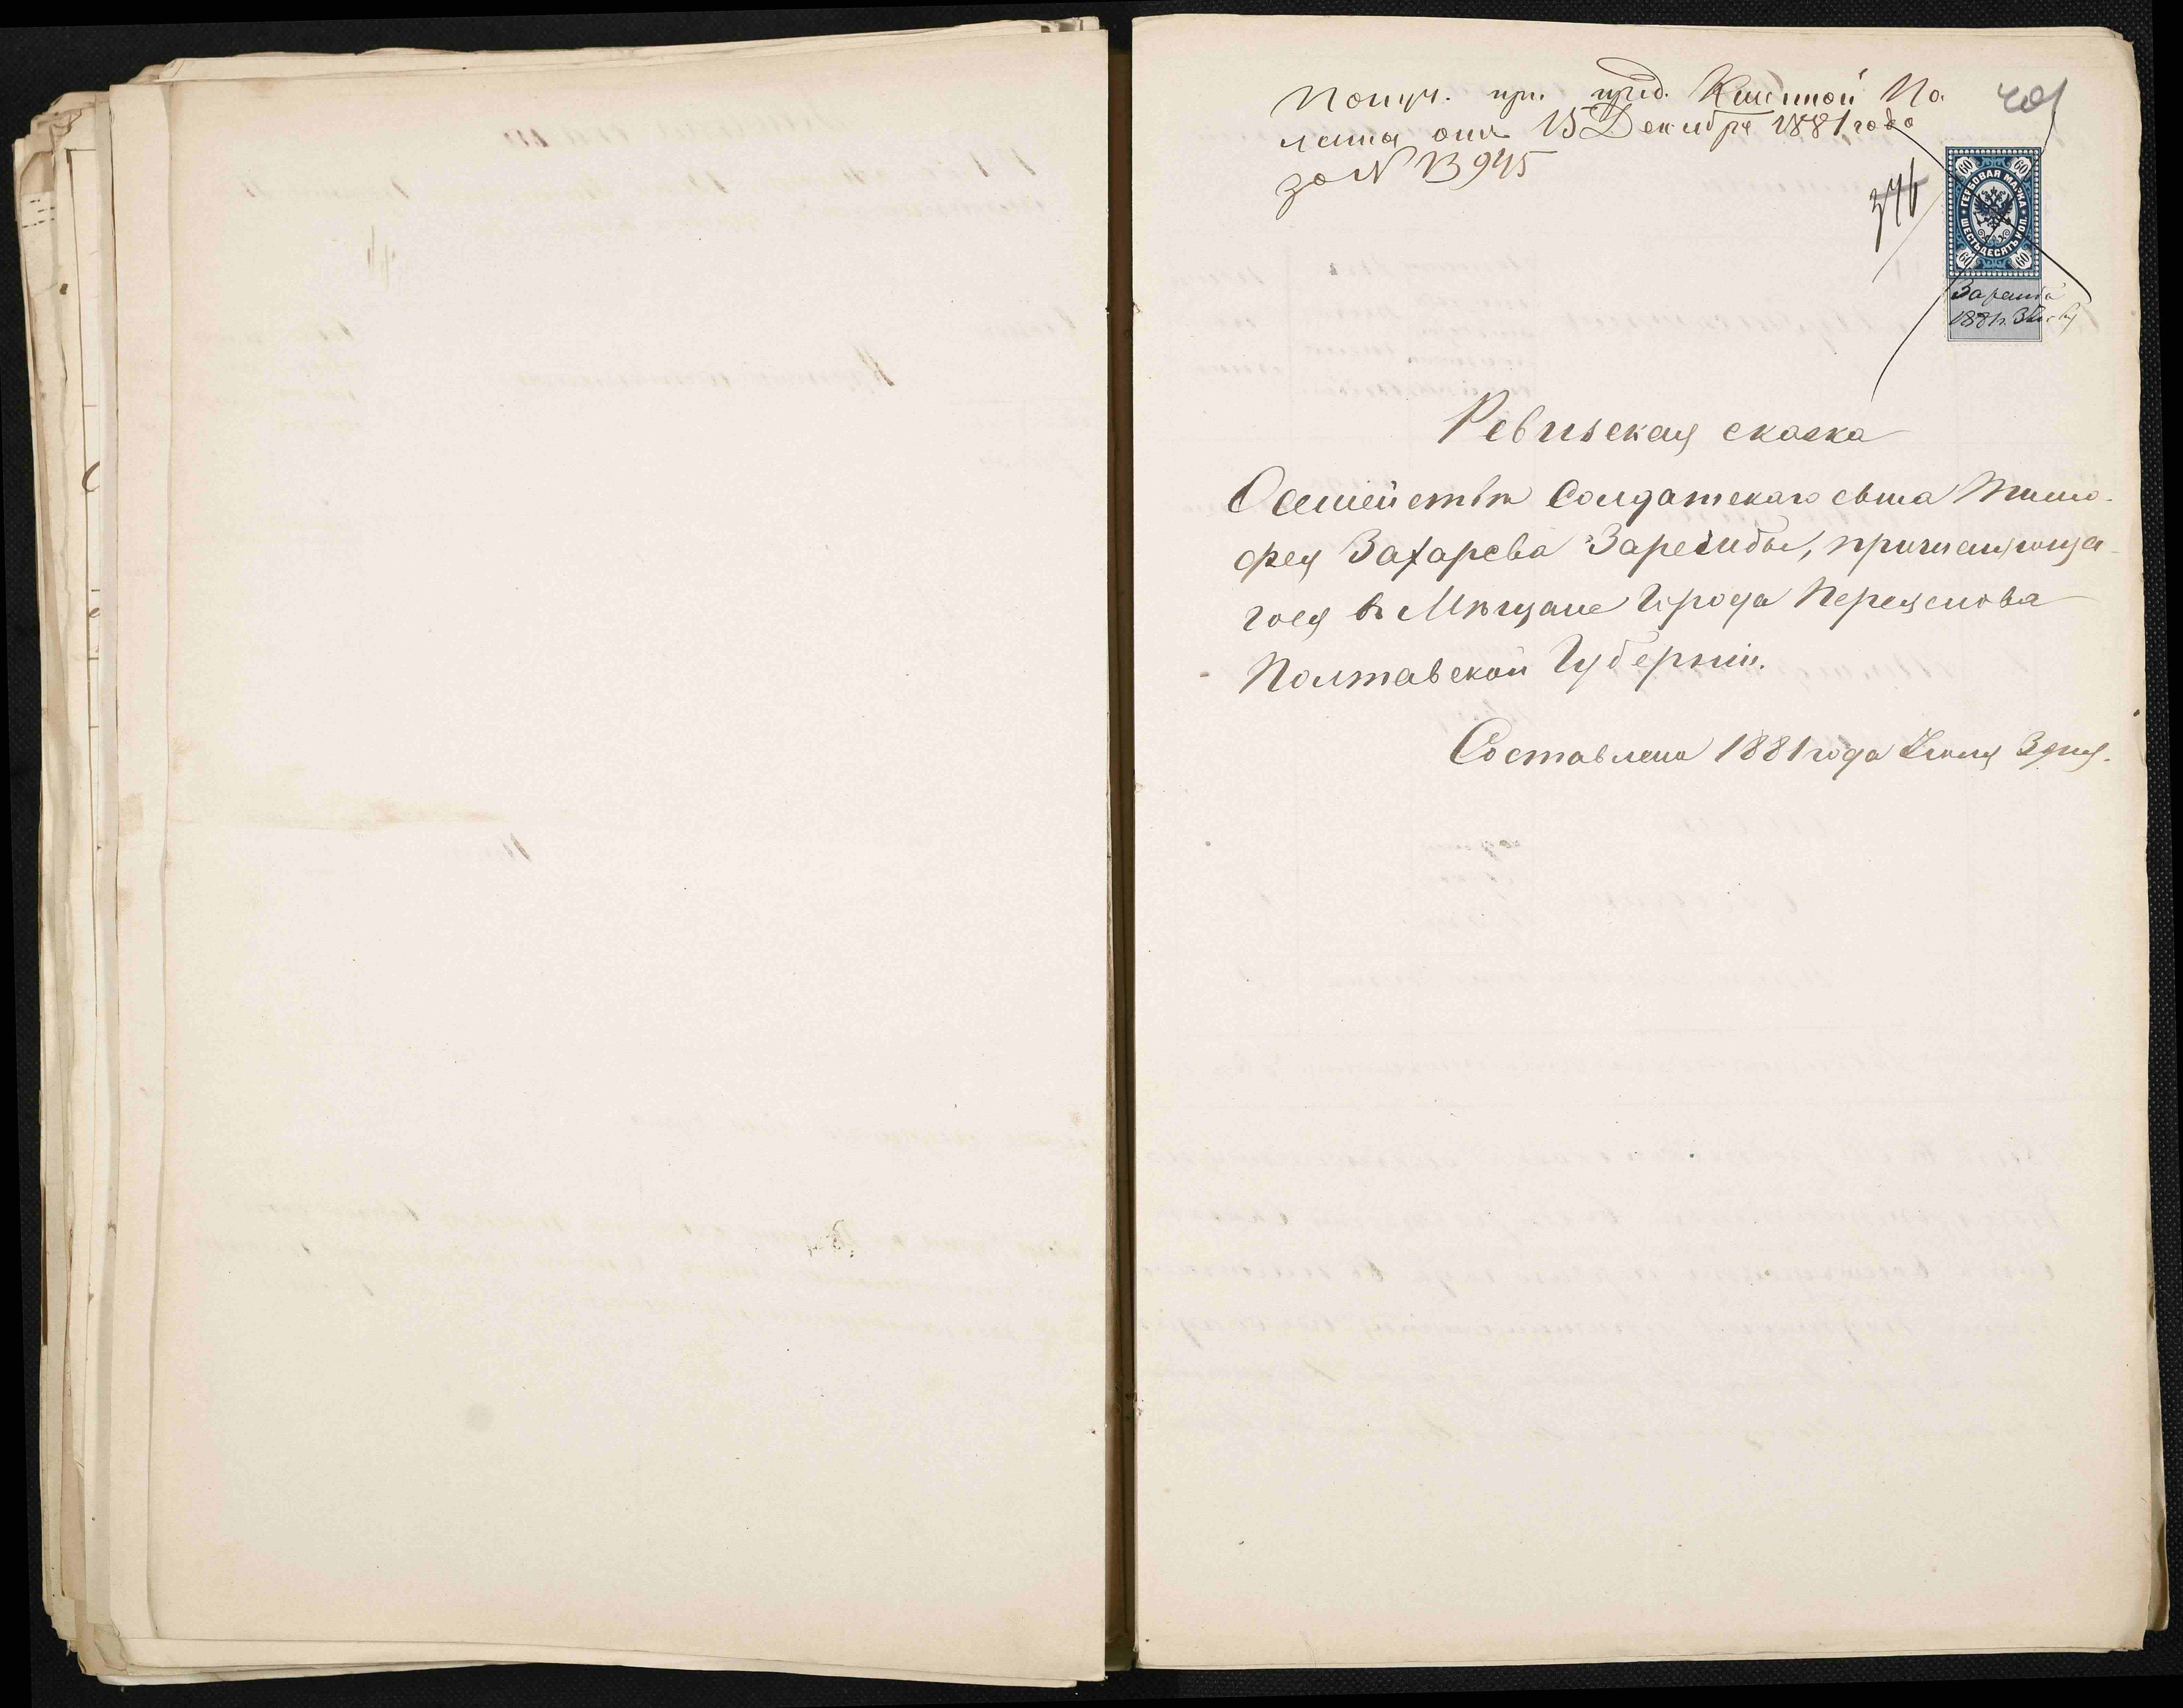 Получ. при пред. Казенной Па
латы отъ 15 Декабря 1881 года
за № 13945
401
376
60 60
ГЕРБОВАЯ МАРКА
ШЕСТЬДЕСЯТЪ КОП.
60 60
1881 г.
Ревизская сказка
О семействѣ Солдатскаго сына Тимо-
фея Захарова Зарезубы, причисляюща-
гося въ Мѣщане Города Переяслова
Полтавской Губерніи.
Составлена 1881 года Іюля 3 дня.